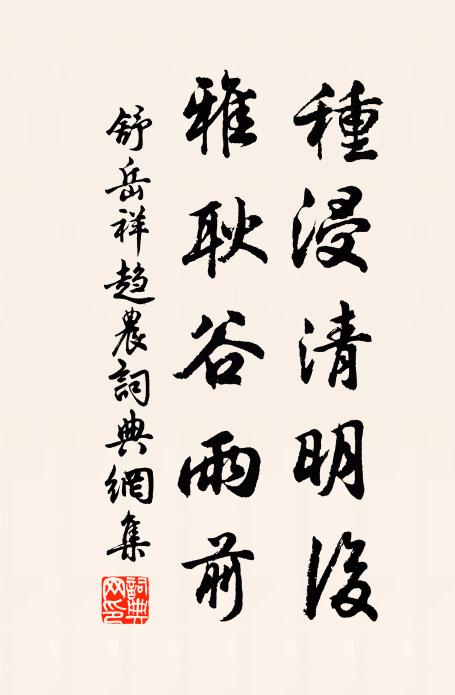 種浸清明後
雅耿谷雨前
舒岳祥趋農詞典網集
詞典網印